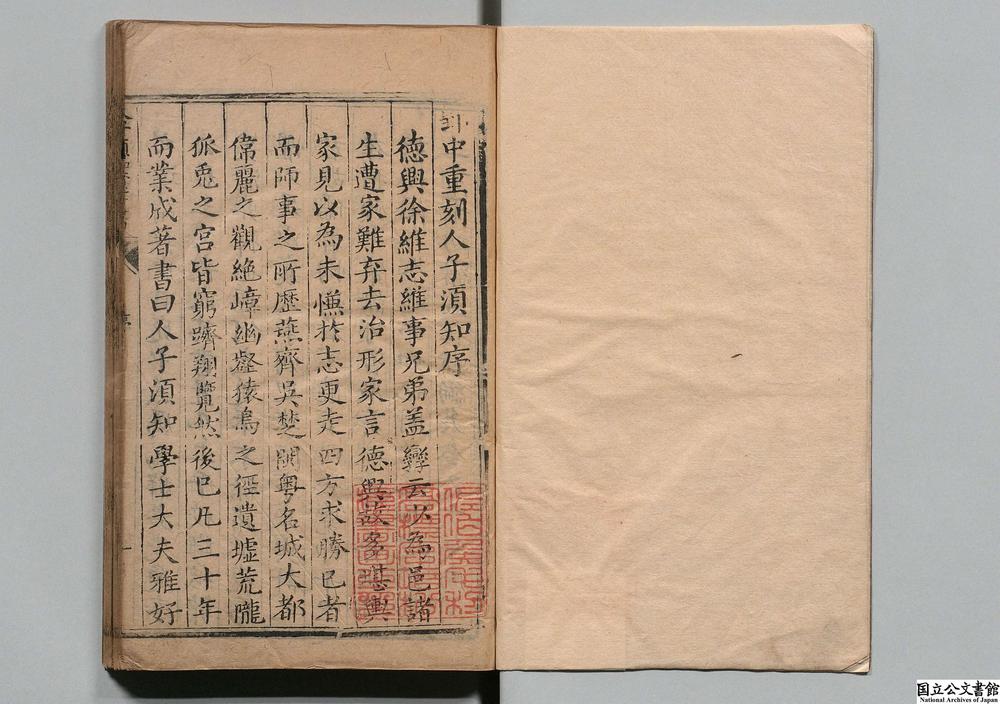 中重刻人子須知序
德興徐維志維事兄弟盖孿云以為邑諸
生遭家難弃去治形家言德興故多堪輿
家見以為未慊於志更走四方求勝已者
而師事之所歷燕齊吳楚閩粤名城大都
偉麗之觀絶嶂幽壑猿鳥之徑遺墟荒隴
狐兎之宫皆窮躋翔覽然後已凡三十年
而業成著書曰人子須知學士大夫雅好
国立公文書館
National Archives of Japan